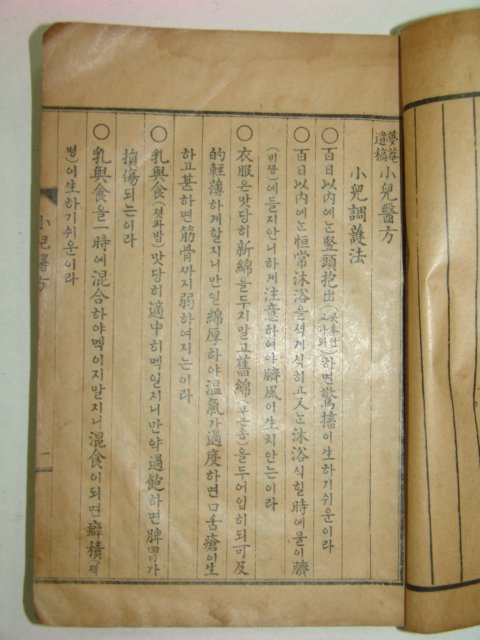 夢菴遺稿 小兒醫方
小兒調護法
○百日以內에는 竪頭抱出(곳추안고나와)하면 驚搐이 생하기 쉬운이라
○百日以內에는 恒常沐浴을 적게 식히고 又는 沐浴 식힐 時에 물이 臍
(빅꼽)에 들지 안니하게 注意하여야 臍風이 生치 안는이라
○衣服은 맛당히 新綿을 두지 말고 舊綿(무른솜)을 두어 입히되 可及
的 輕薄하게 할지니 만일 綿厚하야 溫氣가 過度하면 口舌瘡이 生
하고 甚하면 筋骨까지 弱하여지는이라
○乳與食(젓과밥) 맛당히 適中히 멕일지니 만약 過飽하면 脾胃가
損傷되는이라
○乳與食을 一時에 混合하야 멕이지 말지니 混食이 되면 癖積(적
병)이 生하기 쉬운이라
小兒醫方
一